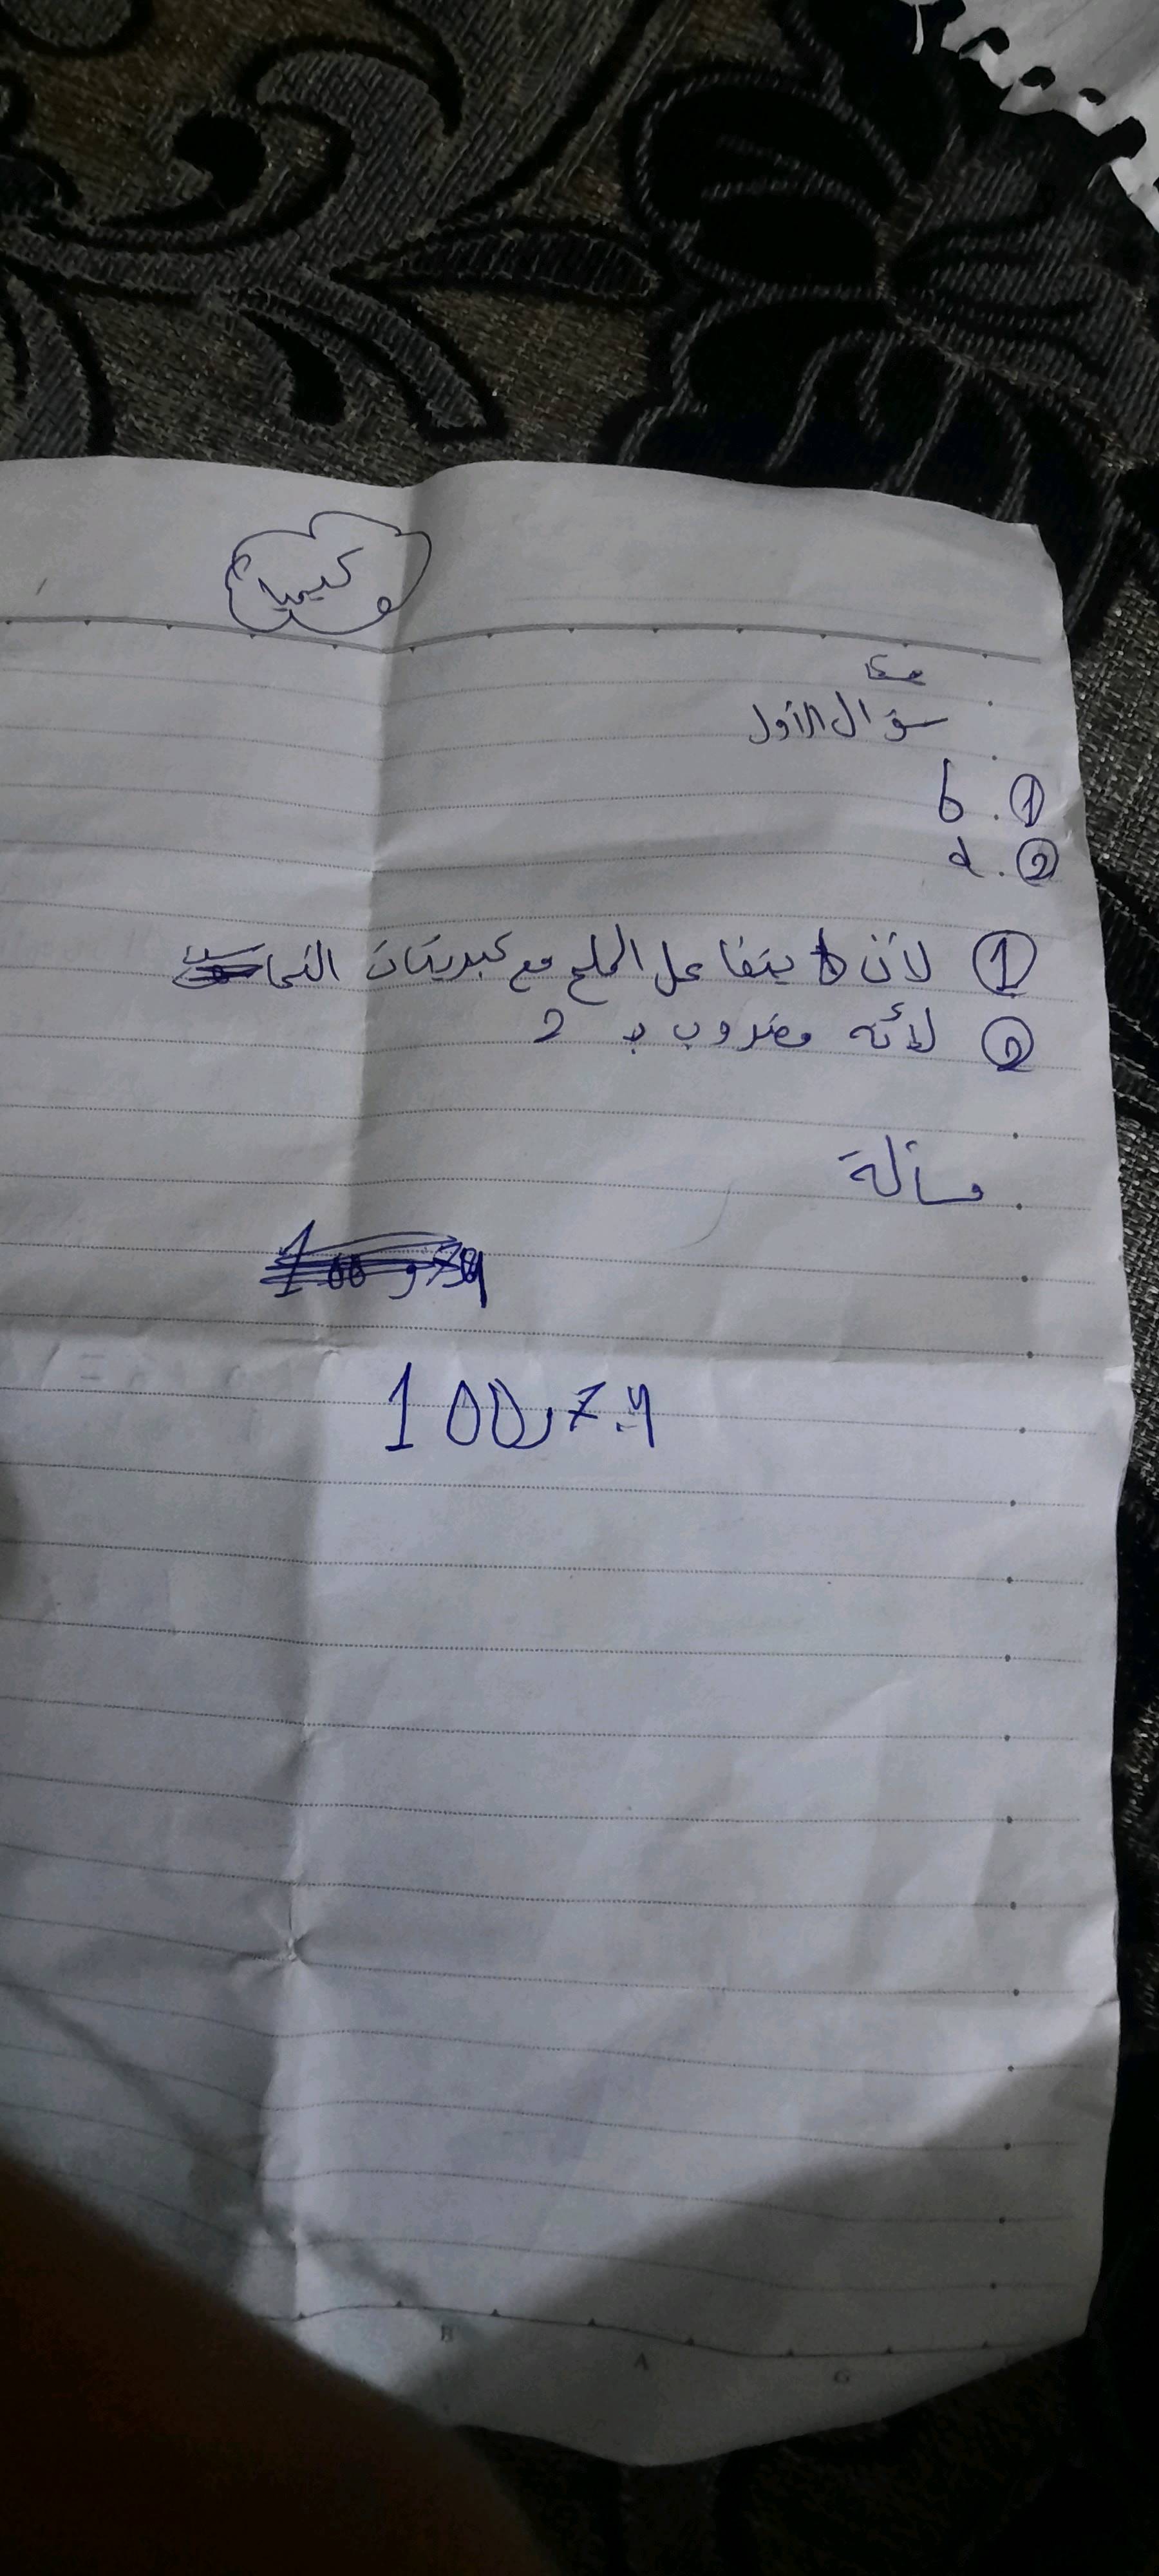 كيميا
سؤال الأول
1. b
2. d
1 لأن يتفاعل الملح مع كبريتات النحاس
2 لأنه مضروب بـ 2
مسألة
100,7.4
B A G